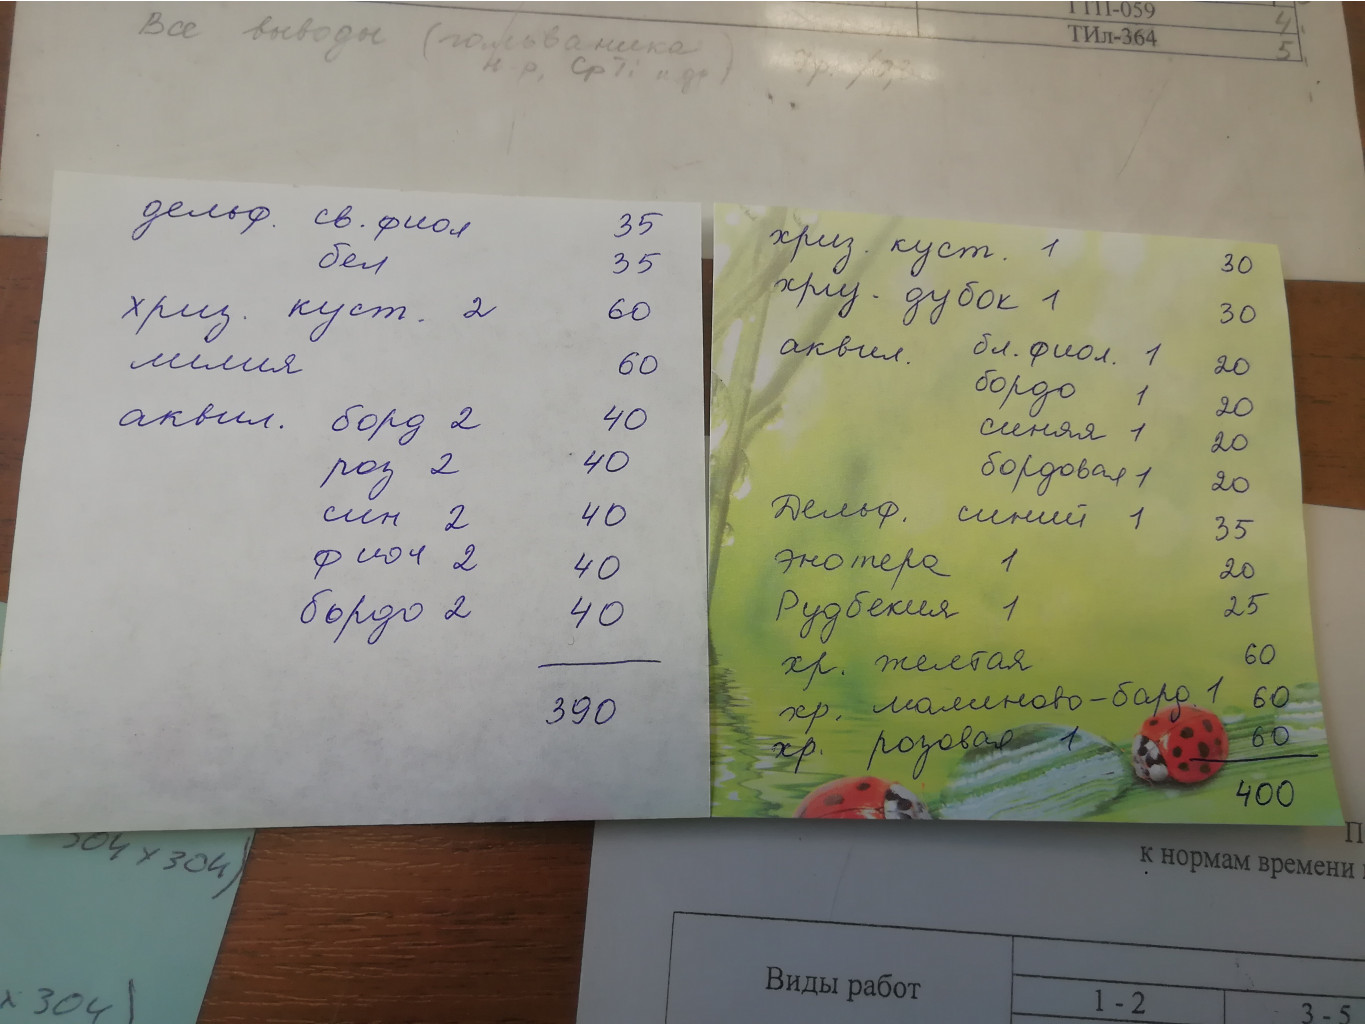 ТПП-059 4
ТИл-364 5
Все выводы (гальваника
н-р, СрТi и др)
дельф. св. фиол 35
бел 35
хриз. куст. 2 60
лилия 60
аквил. борд 2 40
роз 2 40
син 2 40
фиол 2 40
бордо 2 40
390
хриз. куст. 1 30
хриз. дубок 1 30
аквил. бл. фиол. 1 20
бордо 1 20
синяя 1 20
бордовая 1 20
Дельф. синий 1 35
Энотера 1 20
Рудбекия 1 25
хр. желтая 60
хр. малиново-бард. 1 60
хр. розовая 1 60
400
304 х 304)
х 304)
к нормам времени
Виды работ
1 - 2
3 - 5